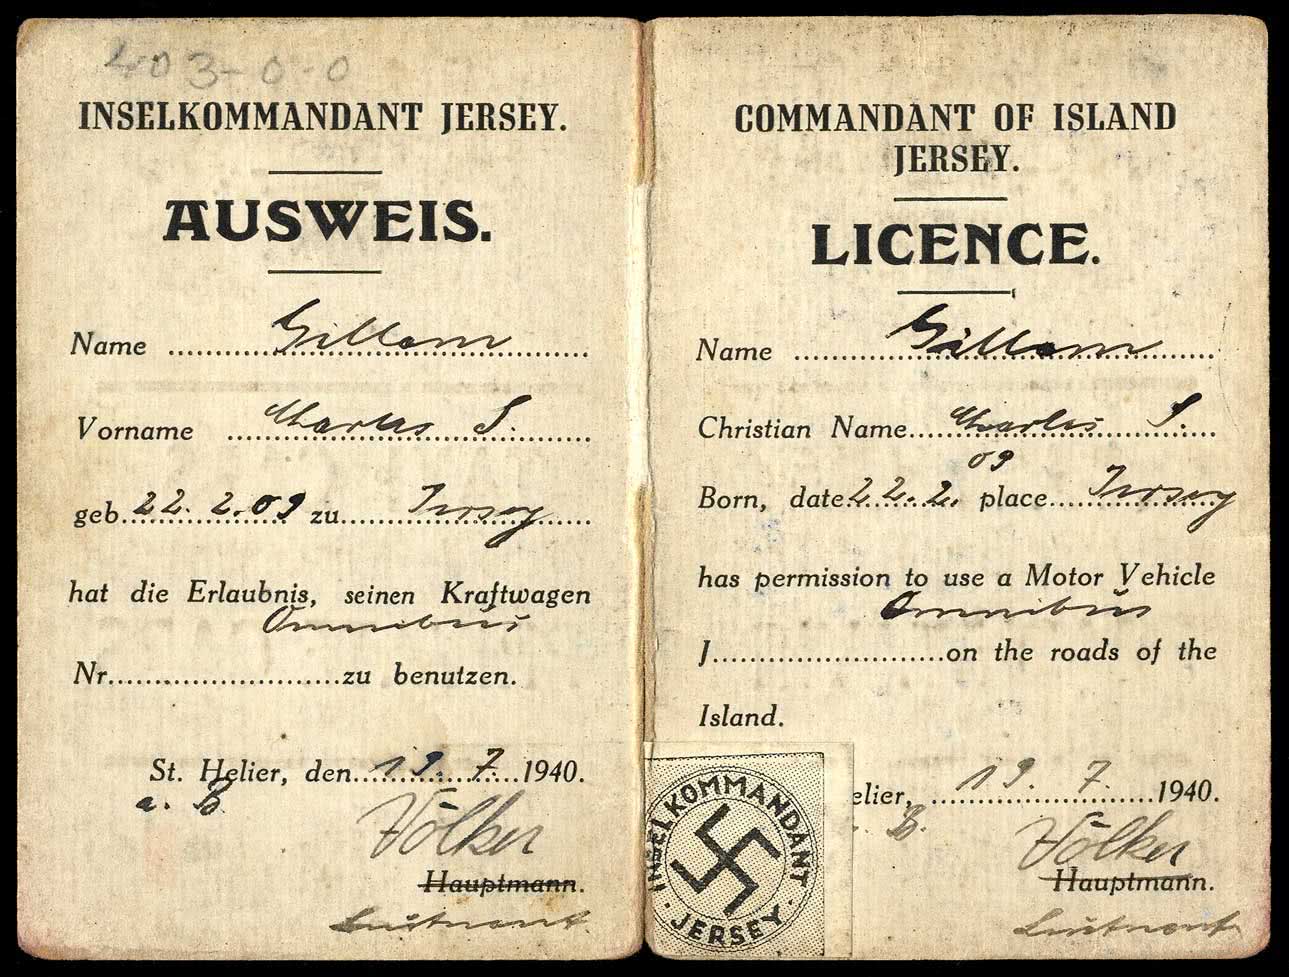 403-0-0
INSELKOMMANDANT JERSEY.
AUSWEIS.
Name Gillam
Vorname Charles S.
geb. 22. 2. 09 zu Jersey
hat die Erlaubnis, seinen Kraftwagen
Omnibus
Nr. zu benutzen.
St. Helier, den 19. 7. 1940.
a. B.
Völker
Hauptmann.
Leutnant
COMMANDANT OF ISLAND
JERSEY.
LICENCE.
Name Gillam
Christian Name Charles S.
09
Born, date 22. 2. place Jersey
has permission to use a Motor Vehicle
Omnibus
J. on the roads of the
Island.
elier, 19. 7. 1940.
B.
Völker
Hauptmann.
Leutnant
INSELKOMMANDANT
· JERSEY ·